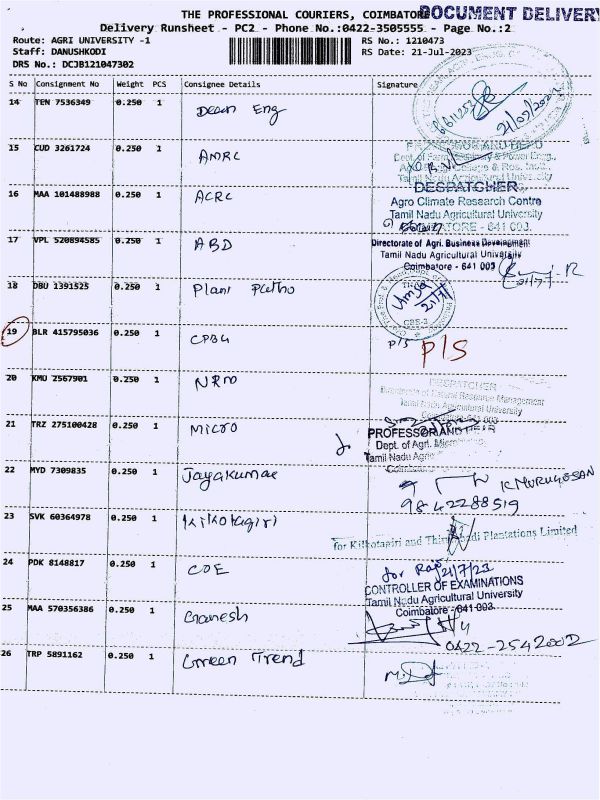 THE PROFESSIONAL COURIERS, COIMBATORE
DOCUMENT DELIVERY
Delivery Runsheet - PC2 - Phone No.:0422-3505555 - Page No.:2
Route: AGRI UNIVERSITY -1
RS No.: 1210473
Staff: DANUSHKODI
RS Date: 21-Jul-2023
DRS No.: DCJB121047302
S No Consignment No Weight PCS Consignee Details Signature
14 TEN 7536349 0.250 1 Dean Eng
21/07/2023
15 CUD 3261724 0.250 1 AMRC
16 MAA 101488988 0.250 1 ACRC
DESPATCHER
Agro Climate Research Centre
Tamil Nadu Agricultural University
COIMBATORE - 641 003.
17 VPL 520894585 0.250 1 ABD
Directorate of Agri. Business Development
Tamil Nadu Agricultural University
Coimbatore - 641 003
18 DBU 1391525 0.250 1 Plant Patho
21/7/
CBE-3
19 BLR 415795036 0.250 1 CPBG
P/S P/S
20 KMU 2567901 0.250 1 NRM
DESPATCHER
Directorate of Natural Resource Management
Tamil Nadu Agricultural University
Coimbatore - 641 003
21 TRZ 275100428 0.250 1 MICRO
PROFESSOR AND HEAD
Dept. of Agri.
Tamil Nadu Agri
22 MYD 7309835 0.250 1 Jayakumar
K MURUGESAN
9842288519
23 SVK 60364978 0.250 1 Kilkotagiri
for Kilkotagiri and Thirumbadi Plantations Limited
24 PDK 8148817 0.250 1 COE
for 21/7/23
CONTROLLER OF EXAMINATIONS
Tamil Nadu Agricultural University
Coimbatore - 641 003.
25 MAA 570356386 0.250 1 Ganesh
0422-2542002
26 TRP 5891162 0.250 1 Green Trend